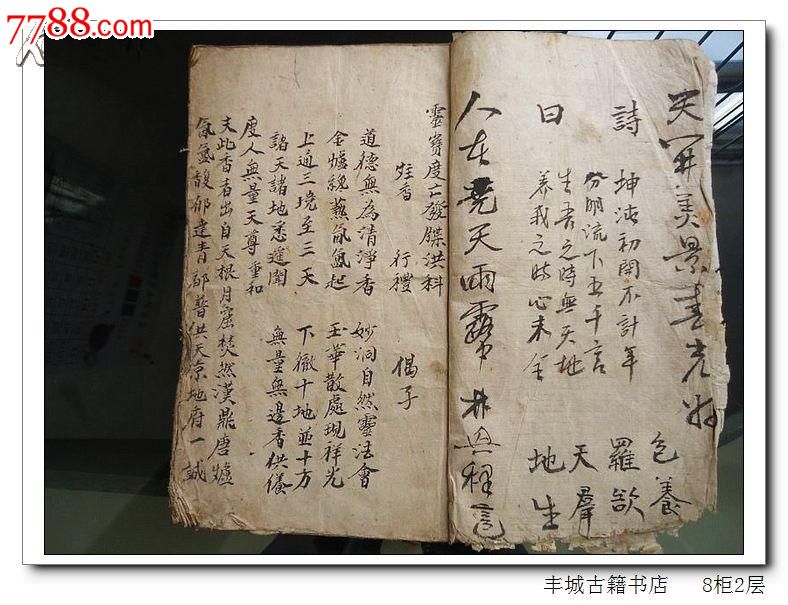 7788.com
天開美景春光好
詩 坤沌初開不計年
分明流下五千言
曰 生吾之時無天地
養我之時心未全
包養
羅欲
天羣
地生
人在堯天雨露中
靈寶度亡發牒洪科
炷香 行禮 偈子
道德無為清淨香 妙洞自然靈法會
金爐綫爇氤氳起 玉華散處現祥光
上通三境至三天 下徹十地並十方
諸天諸地悉遥聞 無量無邊香供儀
度人無量天尊 重和
夫此香者出自天根月窟焚然漢鼎唐爐
氤氳馥郁達青邱普供天京地府一誠
丰城古籍书店 8柜2层